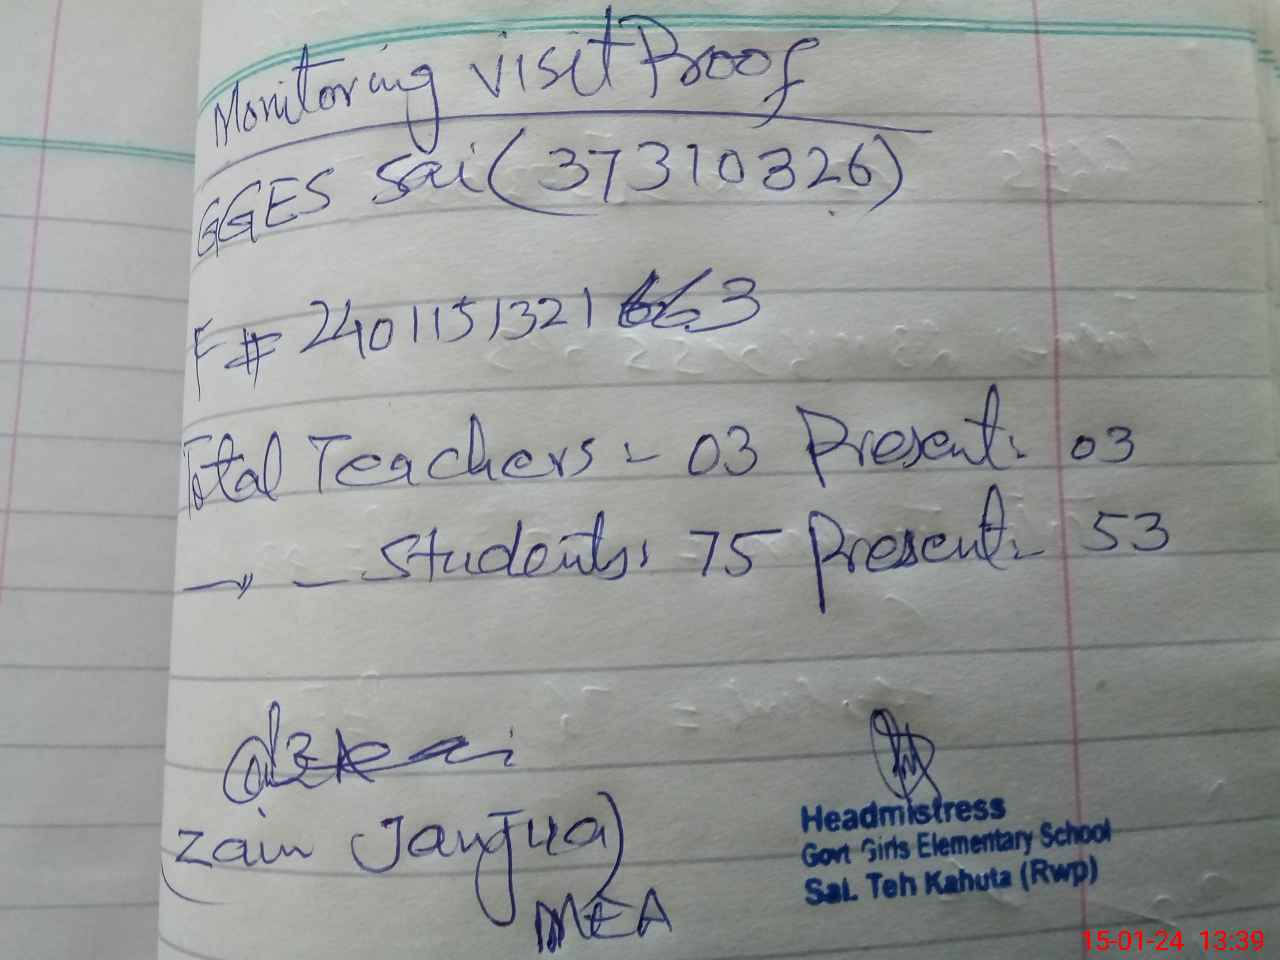 Monitoring visit Proof
GGES Sai (37310326)
F # 2401151321663
Total Teachers :- 03 Present :- 03
Students: 75 Present :- 53
(Zain Janjua)
MEA
Headmistress
Govt Girls Elementary School
Sai. Teh Kahuta (Rwp)
15-01-24 13:39